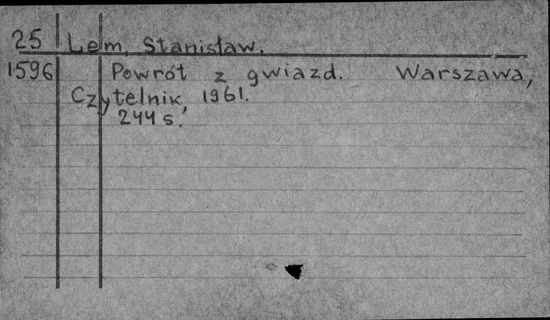 25 Lem, Stanisław.
1596 Powrót z gwiazd. Warszawa,
Czytelnik, 1961.
244 s.